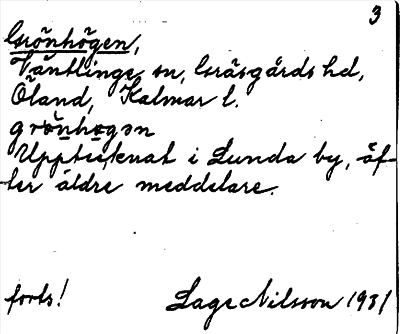 3
Grönhögen,
Väntlinge sn, Gräsgårds hd,
Öland, Kalmar l.
grönhogən
Upptecknat i Lunda by, äf-
ter äldre meddelare.
forts! Lage Nilsson 1931